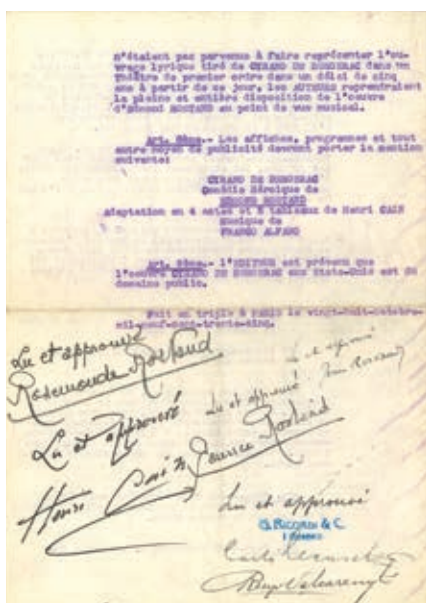 n'étaient pas parvenus à faire représenter l'ou-
vrage lyrique tiré de CYRANO DE BERGERAC dans un
théâtre de premier ordre dans un délai de cinq
ans à partir de ce jour, les AUTEURS reprendraient
la pleine et entière disposition de l'oeuvre
d'Edmond ROSTAND au point de vue musical.
Art. 8ème.- Les affiches, programmes et tout
autre moyen de publicité devront porter la mention
suivante:
CYRANO DE BERGERAC
Comédie Héroïque de
EDMOND ROSTAND
adaptation en 4 actes et 5 tableaux de Henri CAIN
Musique de
FRANCO ALFANO
Art. 9ème.- l'EDITEUR est prévenu que
l'oeuvre CYRANO DE BERGERAC aux Etats-Unis est du
domaine public.
Fait en triple à PARIS le vingt-huit octobre-
mil-neuf-cent-trente-cinq.
Lu et approuvé
Rosemonde Rostand
Lu et approuvé
Lu et approuvé
Lu et approuvé
Jean Rostand
Henri Cain
Maurice Rostand
Lu et approuvé
G. RICORDI & C.